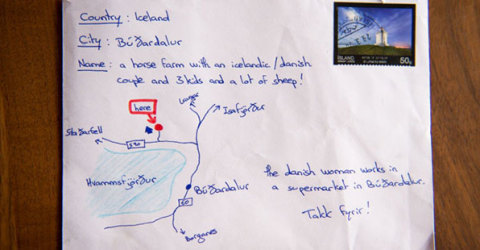 Country : Iceland
City : Búðardalur
Name : a horse farm with an icelandic/danish
couple and 3 kids and a lot of sheep!
ÍSLAND
50g
here
Ísafjörður
590
Hvammsfjörður
Búðardalur
60
Borgarnes
the danish woman works in
a supermarket in Búðardalur.
Takk fyrir!